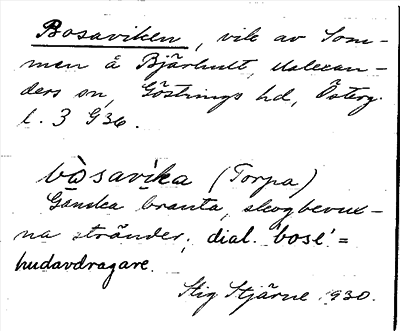 Bosaviken, vik av Som-
men å Bjärhult, Malexan-
ders sn, Göstrings hd, Österg.
l. 3 G36.
bòsavika (Torpa)
Ganska branta, skogbevux-
na stränder; dial. bose =
hudavdragare.
Stig Stjärne 1930.